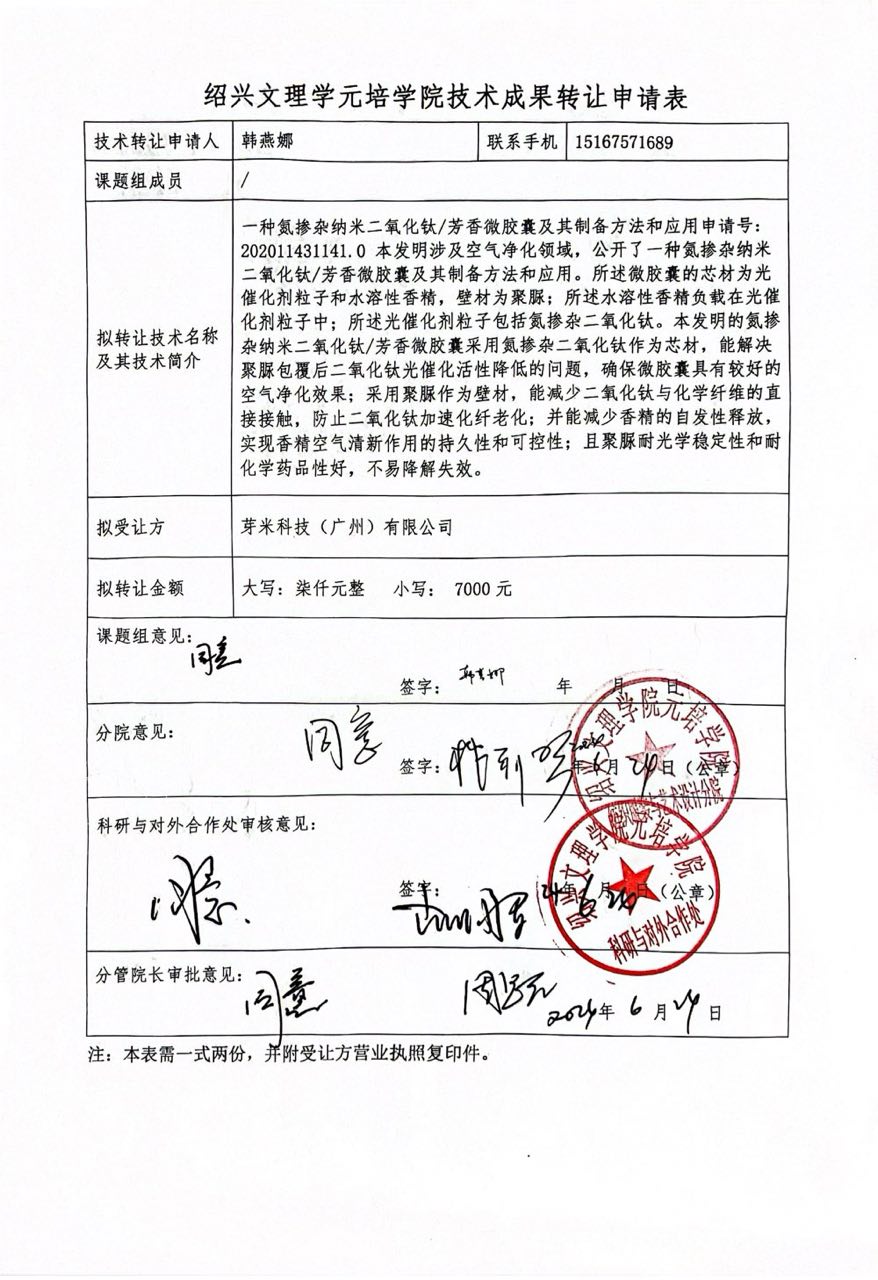 绍兴文理学元培学院技术成果转让申请表
技术转让申请人 韩燕娜 联系手机 15167571689
课题组成员 /
拟转让技术名称及其技术简介
一种氮掺杂纳米二氧化钛/芳香微胶囊及其制备方法和应用申请号：
202011431141.0 本发明涉及空气净化领域，公开了一种氮掺杂纳米
二氧化钛/芳香微胶囊及其制备方法和应用。所述微胶囊的芯材为光
催化剂粒子和水溶性香精，壁材为聚脲；所述水溶性香精负载在光催
化剂粒子中；所述光催化剂粒子包括氮掺杂二氧化钛。本发明的氮掺
杂纳米二氧化钛/芳香微胶囊采用氮掺杂二氧化钛作为芯材，能解决
聚脲包覆后二氧化钛光催化活性降低的问题，确保微胶囊具有较好的
空气净化效果；采用聚脲作为壁材，能减少二氧化钛与化学纤维的直
接接触，防止二氧化钛加速化纤老化；并能减少香精的自发性释放，
实现香精空气清新作用的持久性和可控性；且聚脲耐光学稳定性和耐
化学药品性好，不易降解失效。
拟受让方 芽米科技（广州）有限公司
拟转让金额 大写：柒仟元整 小写： 7000 元
课题组意见：
同意
签字： 韩燕娜 年 月 日
分院意见：
同意
签字： 年 6 月 24 日（公章）
绍兴文理学院元培学院
艺术设计分院
科研与对外合作处审核意见：
同意
签字： 24 年 6 月 24 日（公章）
绍兴文理学院元培学院
科研与对外合作处
分管院长审批意见：
同意
2024 年 6 月 24 日
注：本表需一式两份，并附受让方营业执照复印件。